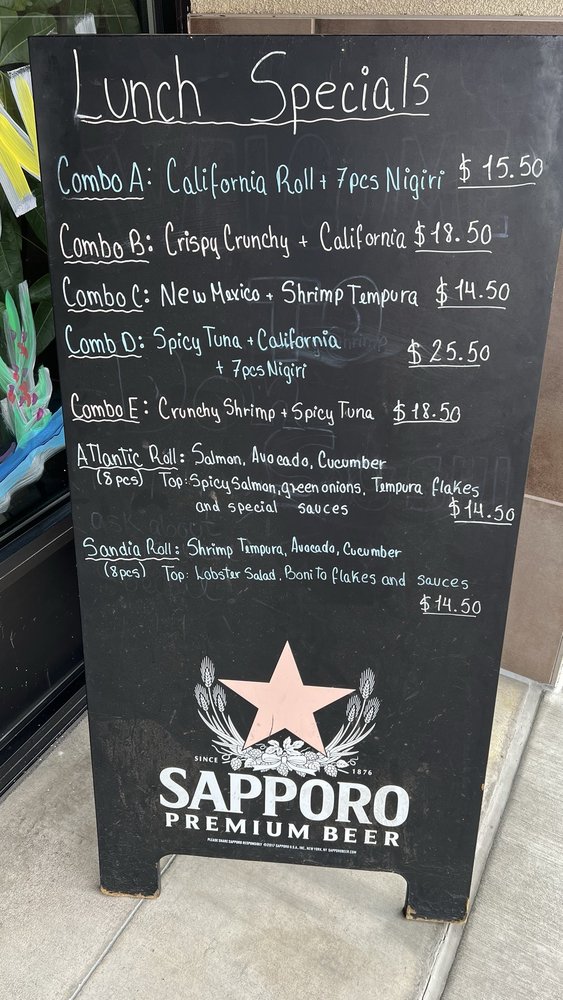 Lunch Specials
Combo A: California Roll + 7pcs Nigiri $15.50
Combo B: Crispy Crunchy + California $18.50
Combo C: New Mexico + Shrimp Tempura $14.50
Comb D: Spicy Tuna + California
+ 7pcs Nigiri $25.50
Combo E: Crunchy Shrimp + Spicy Tuna $18.50
Atlantic Roll: Salmon, Avocado, Cucumber
(8pcs) Top: Spicy Salmon, green onions, Tempura flakes
and special sauces $14.50
Sandia Roll: Shrimp Tempura, Avocado, Cucumber
(8pcs) Top: Lobster Salad, Bonito flakes and sauces
$14.50
SINCE 1876
SAPPORO
PREMIUM BEER
PLEASE SHARE SAPPORO RESPONSIBLY ©2017 SAPPORO U.S.A., INC., NEW YORK, NY SAPPOROBEER.COM